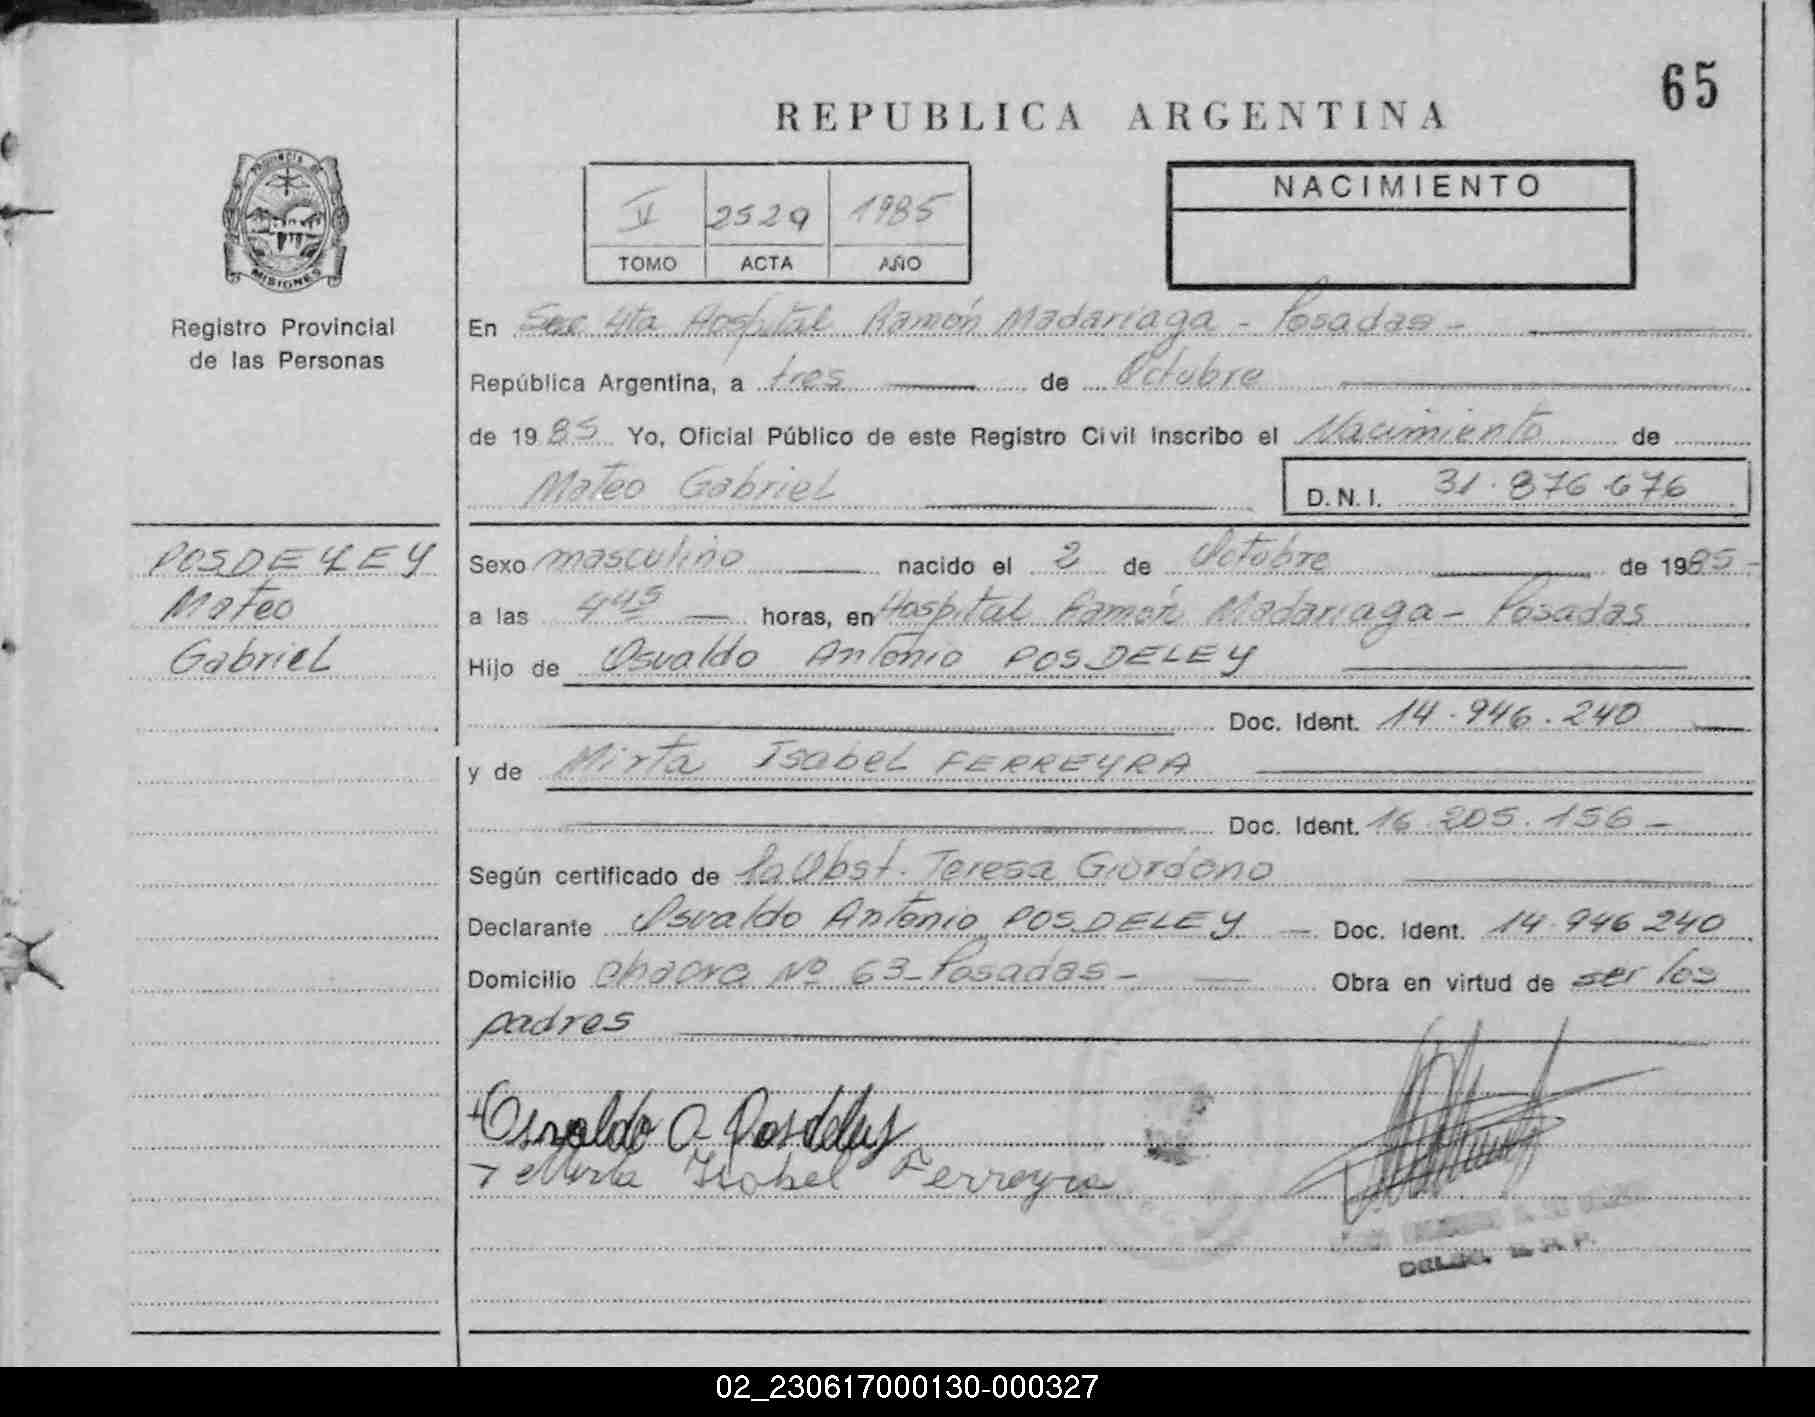 65
REPUBLICA ARGENTINA
V 2529 1985
TOMO ACTA AÑO
NACIMIENTO
PROVINCIA DE
MISIONES
Registro Provincial
de las Personas
En Sec 4ta Hospital Ramón Madariaga - Posadas -
República Argentina, a tres de Octubre
de 1985 Yo, Oficial Público de este Registro Civil Inscribo el Nacimiento de
Mateo Gabriel D.N.I. 31.876.676
POSDELEY
Mateo
Gabriel
Sexo masculino nacido el 2 de Octubre de 1985-
a las 4 45 horas, en Hospital Ramón Madariaga - Posadas
Hijo de Osvaldo Antonio POSDELEY
Doc. Ident. 14.946.240
y de Mirta Isabel FERREYRA
Doc. Ident. 16.205.156-
Según certificado de la Obst. Teresa Giordano
Declarante Osvaldo Antonio POSDELEY - Doc. Ident. 14.946.240
Domicilio chacra Nº 63-Posadas- Obra en virtud de ser los
padres
Osvaldo A Posdeley
Mirta Isabel Ferreyra
02_230617000130-000327